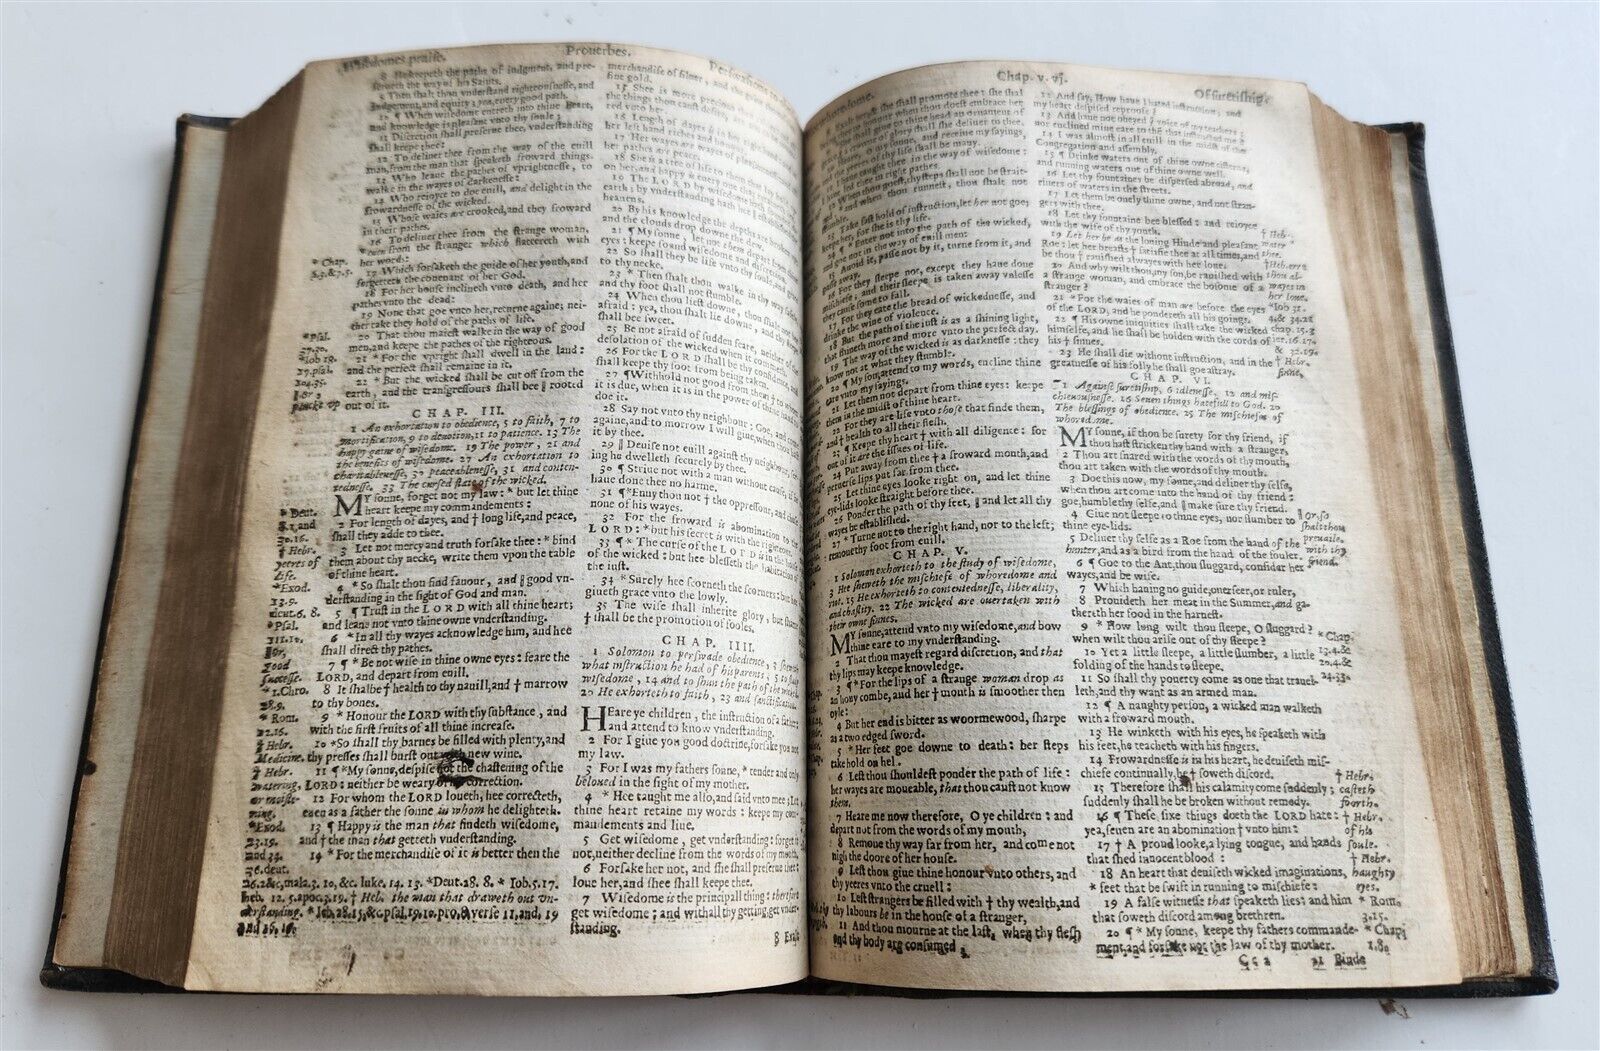 Wisedomes praise.
Prouerbes.
8 He keepeth the paths of iudgment, and pre-
serueth the way of his Saints.
9 Then shalt thou vnderstand righteousnesse, and
iudgement, and equity; yea, euery good path.
10 ¶ When wisedome entreth into thine heart,
and knowledge is pleasant vnto thy soule;
11 Discretion shall preserue thee, vnderstanding
shall keepe thee:
12 To deliuer thee from the way of the euill
man, from the man that speaketh froward things.
13 Who leaue the pathes of vprightnesse, to
walke in the wayes of darkenesse:
14 Who reioyce to doe euill, and delight in the
frowardnesse of the wicked.
15 Whose waies are crooked, and they froward
in their pathes.
16 To deliuer thee from the strange woman,
* euen from the stranger which flattereth with
her words:
17 Which forsaketh the guide of her youth, and
forgetteth the couenant of her God.
18 For her house inclineth vnto death, and her
pathes vnto the dead:
19 None that goe vnto her, returne againe; nei-
ther take they hold of the paths of life.
20 That thou maiest walke in the way of good
men, and keepe the pathes of the righteous.
21 * For the vpright shall dwell in the land:
and the perfect shall remaine in it.
22 * But the wicked shall be cut off from the
earth, and the transgressours shall bee ‖ rooted
out of it.
CHAP. III.
1 An exhortation to obedience, 5 to faith, 7 to
mortification, 9 to deuotion, 11 to patience. 13 The
happy gaine of wisedome. 19 The power, 21 and
the benefits of wisedome. 27 An exhortation to
charitablenesse, 30 peaceablenesse, 31 and conten-
tednesse. 33 The cursed state of the wicked.
MY sonne, forget not my law: * but let thine
heart keepe my commandements:
2 For length of dayes, and † long life, and peace,
shall they adde to thee.
3 Let not mercy and truth forsake thee: * bind
them about thy necke, write them vpon the table
of thine heart.
4 * So shalt thou find fauour, and ‖ good vn-
derstanding in the sight of God and man.
5 ¶ Trust in the LORD with all thine heart;
and leane not vnto thine owne vnderstanding.
6 * In all thy wayes acknowledge him, and hee
shall direct thy pathes.
7 ¶ * Be not wise in thine owne eyes: feare the
LORD, and depart from euill.
8 It shalbe † health to thy nauill, and † marrow
to thy bones.
9 * Honour the LORD with thy substance, and
with the first fruits of all thine increase.
10 * So shall thy barnes be filled with plenty, and
thy presses shall burst out new wine.
11 ¶ * My sonne, despise not the chastening of the
LORD: neither be weary of correction.
12 For whom the LORD loueth, hee correcteth,
euen as a father the sonne in whom he delighteth.
13 ¶ Happy is the man that findeth wisedome,
and † the man that getteth vnderstanding.
14 * For the merchandise of it is better then the
* Chap.
5.3. & 7.5.
* Psal.
37.29.
* Iob 18.
17. psal.
104.35.
‖ Or,
plucke vp
* Deut.
8.1. and
30.16.
† Hebr.
yeeres of
life.
* Exod.
13.9.
deut. 6.8.
* Psal.
111.10.
‖ Or,
good
successe.
* 1. Chro.
28.9.
* Rom.
12.16.
† Hebr.
Medicine.
† Hebr.
watering,
or moiste-
ning.
* Exod.
23.19.
and 34.
26. deut.
26.2. &c, mala. 3. 10, &c. luke. 14. 13. * Deut. 28. 8. * Iob. 5. 17.
heb. 12. 5. apoc. 3. 19. † Heb. the man that draweth out vn-
derstanding. * Iob. 28. 15, &c. psal. 19. 10. pro. 8. verse 11, and, 19
and 16. 16.
merchandise of siluer, and the gaine
fine gold.
15 Shee is more precious then
the things thou canst desire,
red vnto her.
16 Length of dayes is in her right
her left hand riches and honour.
17 Her wayes are wayes of
her pathes are peace.
18 She is a tree of life to them that lay
on her, and happy is euery one that
19 The LORD by wisedome hath
earth; by vnderstanding hath hee
heauens.
20 By his knowledge the depths are broken
and the clouds drop downe the dew.
21 ¶ My sonne, let not them depart from
eyes: keepe sound wisedome and discretion.
22 So shall they be life vnto thy soule, and
to thy necke.
23 * Then shalt thou walke in thy way safely,
and thy foot shall not stumble.
24 When thou liest downe, thou shalt not
afraid: yea, thou shalt lie downe, and thy
shall bee sweet.
25 Be not afraid of sudden feare, neither of
desolation of the wicked when it commeth.
26 For the LORD shall be thy confidence, and
shall keepe thy foot from being taken.
27 ¶ Withhold not good from them to whom
it is due, when it is in the power of thine hand
doe it.
28 Say not vnto thy neighbour; Goe, and come
againe, and to morrow I will giue, when thou
it by thee.
29 ‖ Deuise not euill against thy neighbour,
ing he dwelleth securely by thee.
30 ¶ Striue not with a man without cause, if
haue done thee no harme.
31 ¶ * Enuy thou not † the oppressour, and choose
none of his wayes.
32 For the froward is abomination to the
LORD: * but his secret is with the righteous.
33 ¶ * The curse of the LORD is in the house
of the wicked: but hee blesseth the habitation of
the iust.
34 * Surely hee scorneth the scorners: but hee
giueth grace vnto the lowly.
35 The wise shall inherite glory, but shame
† shall be the promotion of fooles.
CHAP. IIII.
1 Solomon to perswade obedience, 3 sheweth
what instruction he had of his parents, 5 to study
wisedome, 14 and to shun the path of the wicked.
20 He exhorteth to faith, 23 and sanctification.
HEare ye children, the instruction of a father;
and attend to know vnderstanding.
2 For I giue you good doctrine, forsake you not
my law.
3 For I was my fathers sonne, * tender and only
beloued in the sight of my mother.
4 * Hee taught me also, and said vnto mee; Let
thine heart retaine my words: keepe my com-
mandements and liue.
5 Get wisedome, get vnderstanding: forget it
not, neither decline from the words of my mouth.
6 Forsake her not, and she shall preserue thee:
loue her, and shee shall keepe thee.
7 Wisedome is the principall thing: therefore
get wisedome; and with all thy getting, get vnder-
standing.
8 Exalt
Chap. v. vj.
Of suretiship.
she shall promote thee: she shal
when thou doest embrace her
giue to thine head an ornament of
of glory shall she deliuer to thee.
and receiue my sayings,
of thy life shall be many.
thee in the way of wisedome:
led thee in right pathes.
When thou goest, thy steps shall not be strait-
and when thou runnest, thou shalt not
stumble.
Take fast hold of instruction, let her not goe;
keepe her, for she is thy life.
Enter not into the path of the wicked,
and goe not in the way of euill men.
Auoid it, passe not by it, turne from it, and
passe away.
16 For they sleepe not, except they haue done
mischiefe; and their sleepe is taken away vnlesse
they cause some to fall.
17 For they eate the bread of wickednesse, and
drinke the wine of violence.
18 But the path of the iust is as a shining light,
that shineth more and more vnto the perfect day.
19 The way of the wicked is as darkenesse: they
know not at what they stumble.
20 ¶ My sonne, attend to my words, encline thine
eare vnto my sayings.
21 Let them not depart from thine eyes: keepe
them in the midst of thine heart.
22 For they are life vnto those that finde them,
and † health to all their flesh.
23 ¶ Keepe thy heart † with all diligence: for
out of it are the issues of life.
24 Put away from thee † a froward mouth, and
peruerse lips put far from thee.
25 Let thine eyes looke right on, and let thine
eye-lids looke straight before thee.
26 Ponder the path of thy feet, ‖ and let all thy
wayes be established.
27 * Turne not to the right hand, nor to the left;
remoue thy foot from euill.
CHAP. V.
1 Solomon exhorteth to the study of wisedome,
3 He sheweth the mischiefe of whoredome and
riot. 15 He exhorteth to contentednesse, liberality,
and chastity. 22 The wicked are ouertaken with
their owne sinnes.
MY sonne, attend vnto my wisedome, and bow
thine eare to my vnderstanding.
2 That thou mayest regard discretion, and that
thy lips may keepe knowledge.
3 ¶ * For the lips of a strange woman drop as
an hony combe, and her † mouth is smoother then
oyle:
4 But her end is bitter as woormewood, sharpe
as a two edged sword.
5 * Her feet goe downe to death: her steps
take hold on hel.
6 Left thou shouldest ponder the path of life:
her wayes are moueable, that thou canst not know
them.
7 Heare me now therefore, O ye children: and
depart not from the words of my mouth,
8 Remoue thy way far from her, and come not
nigh the doore of her house.
9 Lest thou giue thine honour vnto others, and
thy yeeres vnto the cruell:
10 Lest strangers be filled with † thy wealth, and
thy labours be in the house of a stranger,
11 And thou mourne at the last, when thy flesh
and thy body are consumed,
12 And say, How haue I hated instruction; and
my heart despised reproofe?
13 And haue not obeyed y voice of my teachers;
nor enclined mine eare to thē that instructed me!
14 I was almost in all euill in the midst of the
Congregation and assembly.
15 ¶ Drinke waters out of thine owne cisterne,
and running waters out of thine owne well.
16 Let thy fountaines be dispersed abroad, and
riuers of waters in the streets.
17 Let them be onely thine owne, and not stran-
gers with thee.
18 Let thy fountaine bee blessed: and reioyce
with the wife of thy youth.
19 Let her be as the louing Hinde and pleasant
Roe: let her breasts † satisfie thee at all times, and
be thou † rauished alwayes with her loue.
20 And why wilt thou, my son, be rauished with
a strange woman, and embrace the bosome of a
stranger?
21 * For the waies of man are before the eyes
of the LORD, and he pondereth all his goings.
22 ¶ His owne iniquities shall take the wicked
himselfe, and he shall be holden with the cords of
his † sinnes.
23 He shall die without instruction, and in the
greatnesse of his folly he shall goe astray.
CHAP. VI.
1 Against suretiship, 6 idlenesse, 12 and mis-
chieuousnesse. 16 Seuen things hatefull to God. 20
The blessings of obedience. 25 The mischiefes of
whoredome.
MY sonne, if thou be surety for thy friend, if
thou hast stricken thy hand with a stranger,
2 Thou art snared with the words of thy mouth,
thou art taken with the words of thy mouth.
3 Doe this now, my sonne, and deliuer thy selfe,
when thou art come into the hand of thy friend:
goe, humble thy selfe, and ‖ make sure thy friend.
4 Giue not sleepe to thine eyes, nor slumber to
thine eye-lids.
5 Deliuer thy selfe as a Roe from the hand of the
hunter, and as a bird from the hand of the fouler.
6 ¶ Goe to the Ant, thou sluggard, consider her
wayes, and be wise.
7 Which hauing no guide, ouerseer, or ruler,
8 Prouideth her meat in the Summer, and ga-
thereth her food in the haruest.
9 * How long wilt thou sleepe, O sluggard?
when wilt thou arise out of thy sleepe?
10 Yet a little sleepe, a little slumber, a little
folding of the hands to sleepe.
11 So shall thy pouerty come as one that trauel-
leth, and thy want as an armed man.
12 ¶ A naughty person, a wicked man walketh
with a froward mouth.
13 He winketh with his eyes, he speaketh with
his feet, he teacheth with his fingers.
14 Frowardnesse is in his heart, he deuiseth mis-
chiefe continually, he † soweth discord.
15 Therefore shall his calamity come suddenly;
suddenly shall he be broken without remedy.
16 ¶ These sixe things doeth the LORD hate:
yea, seuen are an abomination † vnto him:
17 † A proud looke, a lying tongue, and hands
that shed innocent blood:
18 An heart that deuiseth wicked imaginations,
* feet that be swift in running to mischiefe:
19 A false witnesse that speaketh lies; and him
that soweth discord among brethren.
20 * My sonne, keepe thy fathers commande-
ment, and forsake not the law of thy mother.
† Heb.
water
thee.
† Heb. erre
thou al-
wayes in
her loue.
* Iob 31.
4. & 34.21
chap. 15.3
ier. 16.17.
& 32.19.
† Hebr.
sinne.
‖ Or, so
shalt thou
preuaile
with thy
friend.
* Chap.
13.4. &
20.4. &
24.33.
† Hebr.
casteth
foorth.
† Hebr.
of his
soule.
† Hebr.
haughty
eyes.
* Rom.
3.15.
* Chap.
1.8.
Cc 2
21 Binde